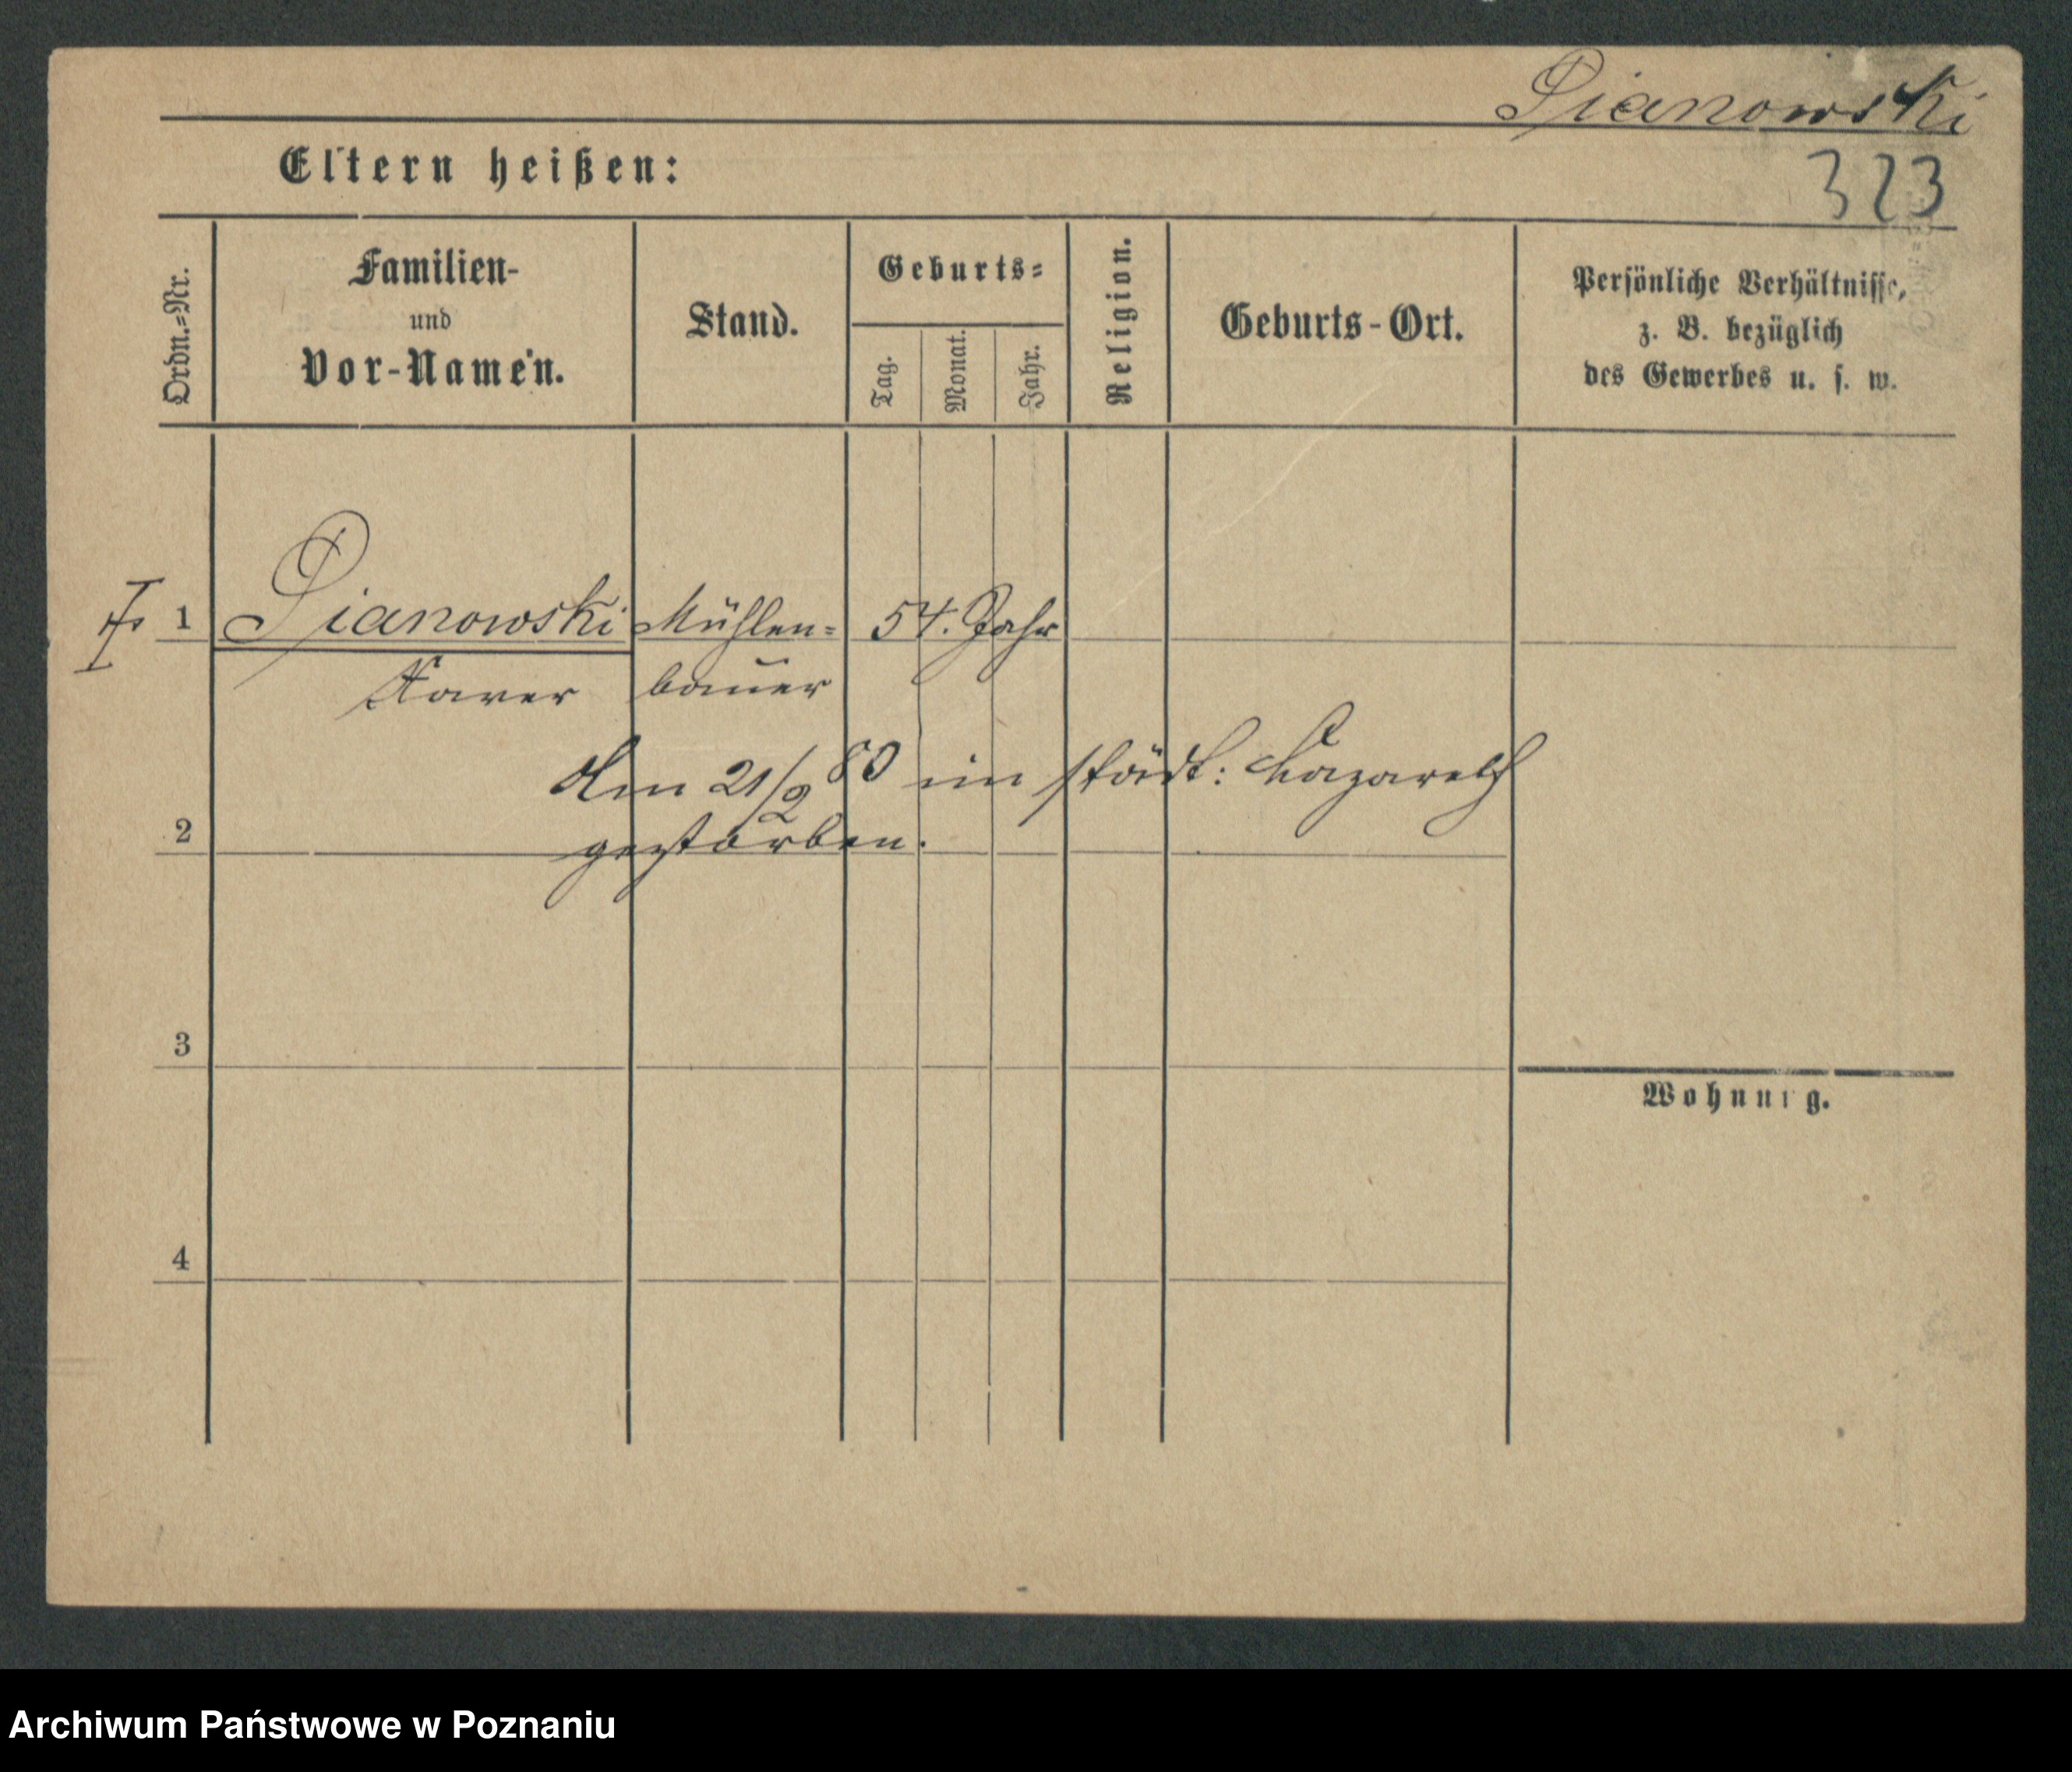 Pianowski
Eltern heißen:
323
Ordn.=Nr.
Familien-
und
Vor-Namen.
Stand.
Geburts=
Tag.
Monat.
Jahr.
Religion.
Geburts-Ort.
Persönliche Verhältnisse,
z. B. bezüglich
des Gewerbes u. s. w.
1 Pianowski Mühlen= 54. Jahr
Xaver bauer
Am 21/2 80 im städt: Lazareth
gestorben.
2
3
Wohnung.
4
Archiwum Państwowe w Poznaniu